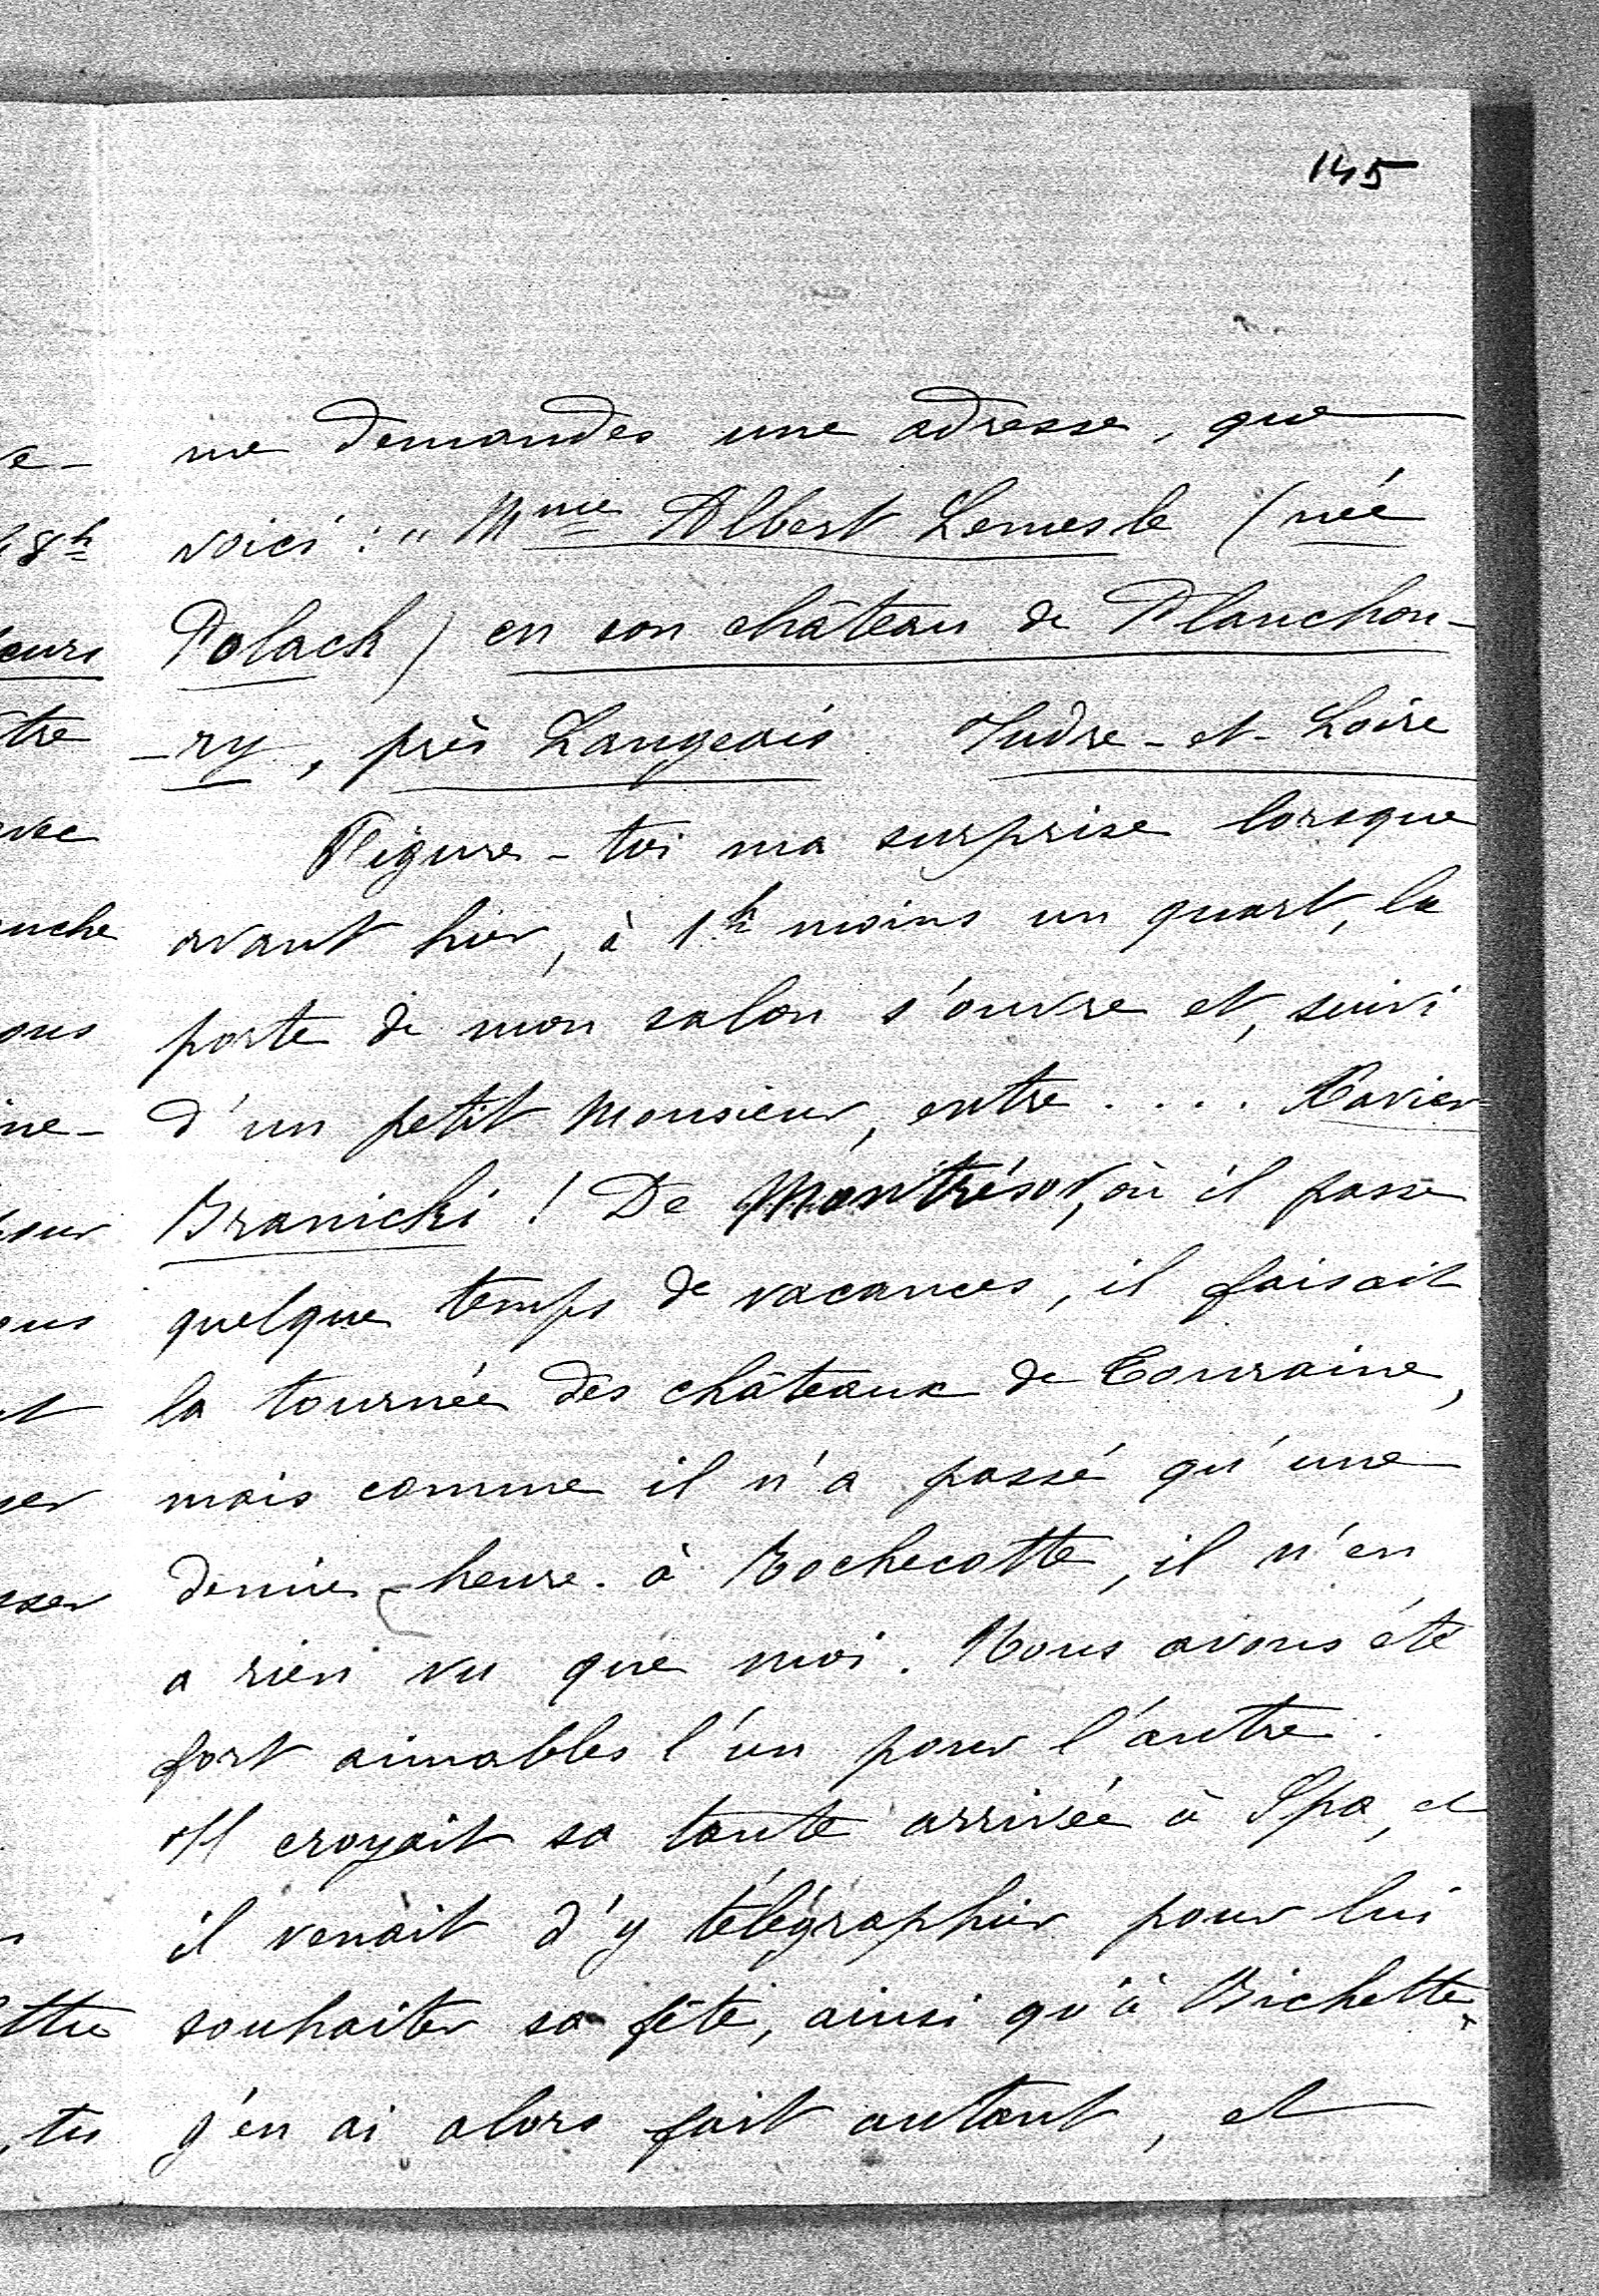 145
me demandes une adresse, que
voici : " Mme Albert Lemesle (née
Polack) en son château de Planchou-
-ry, près Langeais Indre-et-Loire
Figure-toi ma surprise lorsque
avant hier, à 1h moins un quart, la
porte de mon salon s'ouvre et, suivi
d'un petit Monsieur, entre . . . . Xavier
Branicki ! De Montrésor, où il passe
quelque temps de vacances, il faisait
la tournée des châteaux de Touraine,
mais comme il n'a passé qu'une
demie-heure à Rochecotte, il n'en
a rien vu que moi. Nous avons été
fort aimables l'un pour l'autre.
Il croyait sa tante arrivée à Spa, et
il venait d'y télégraphier pour lui
souhaiter sa fête, ainsi qu'à Bichette.
j'en ai alors fait autant, et